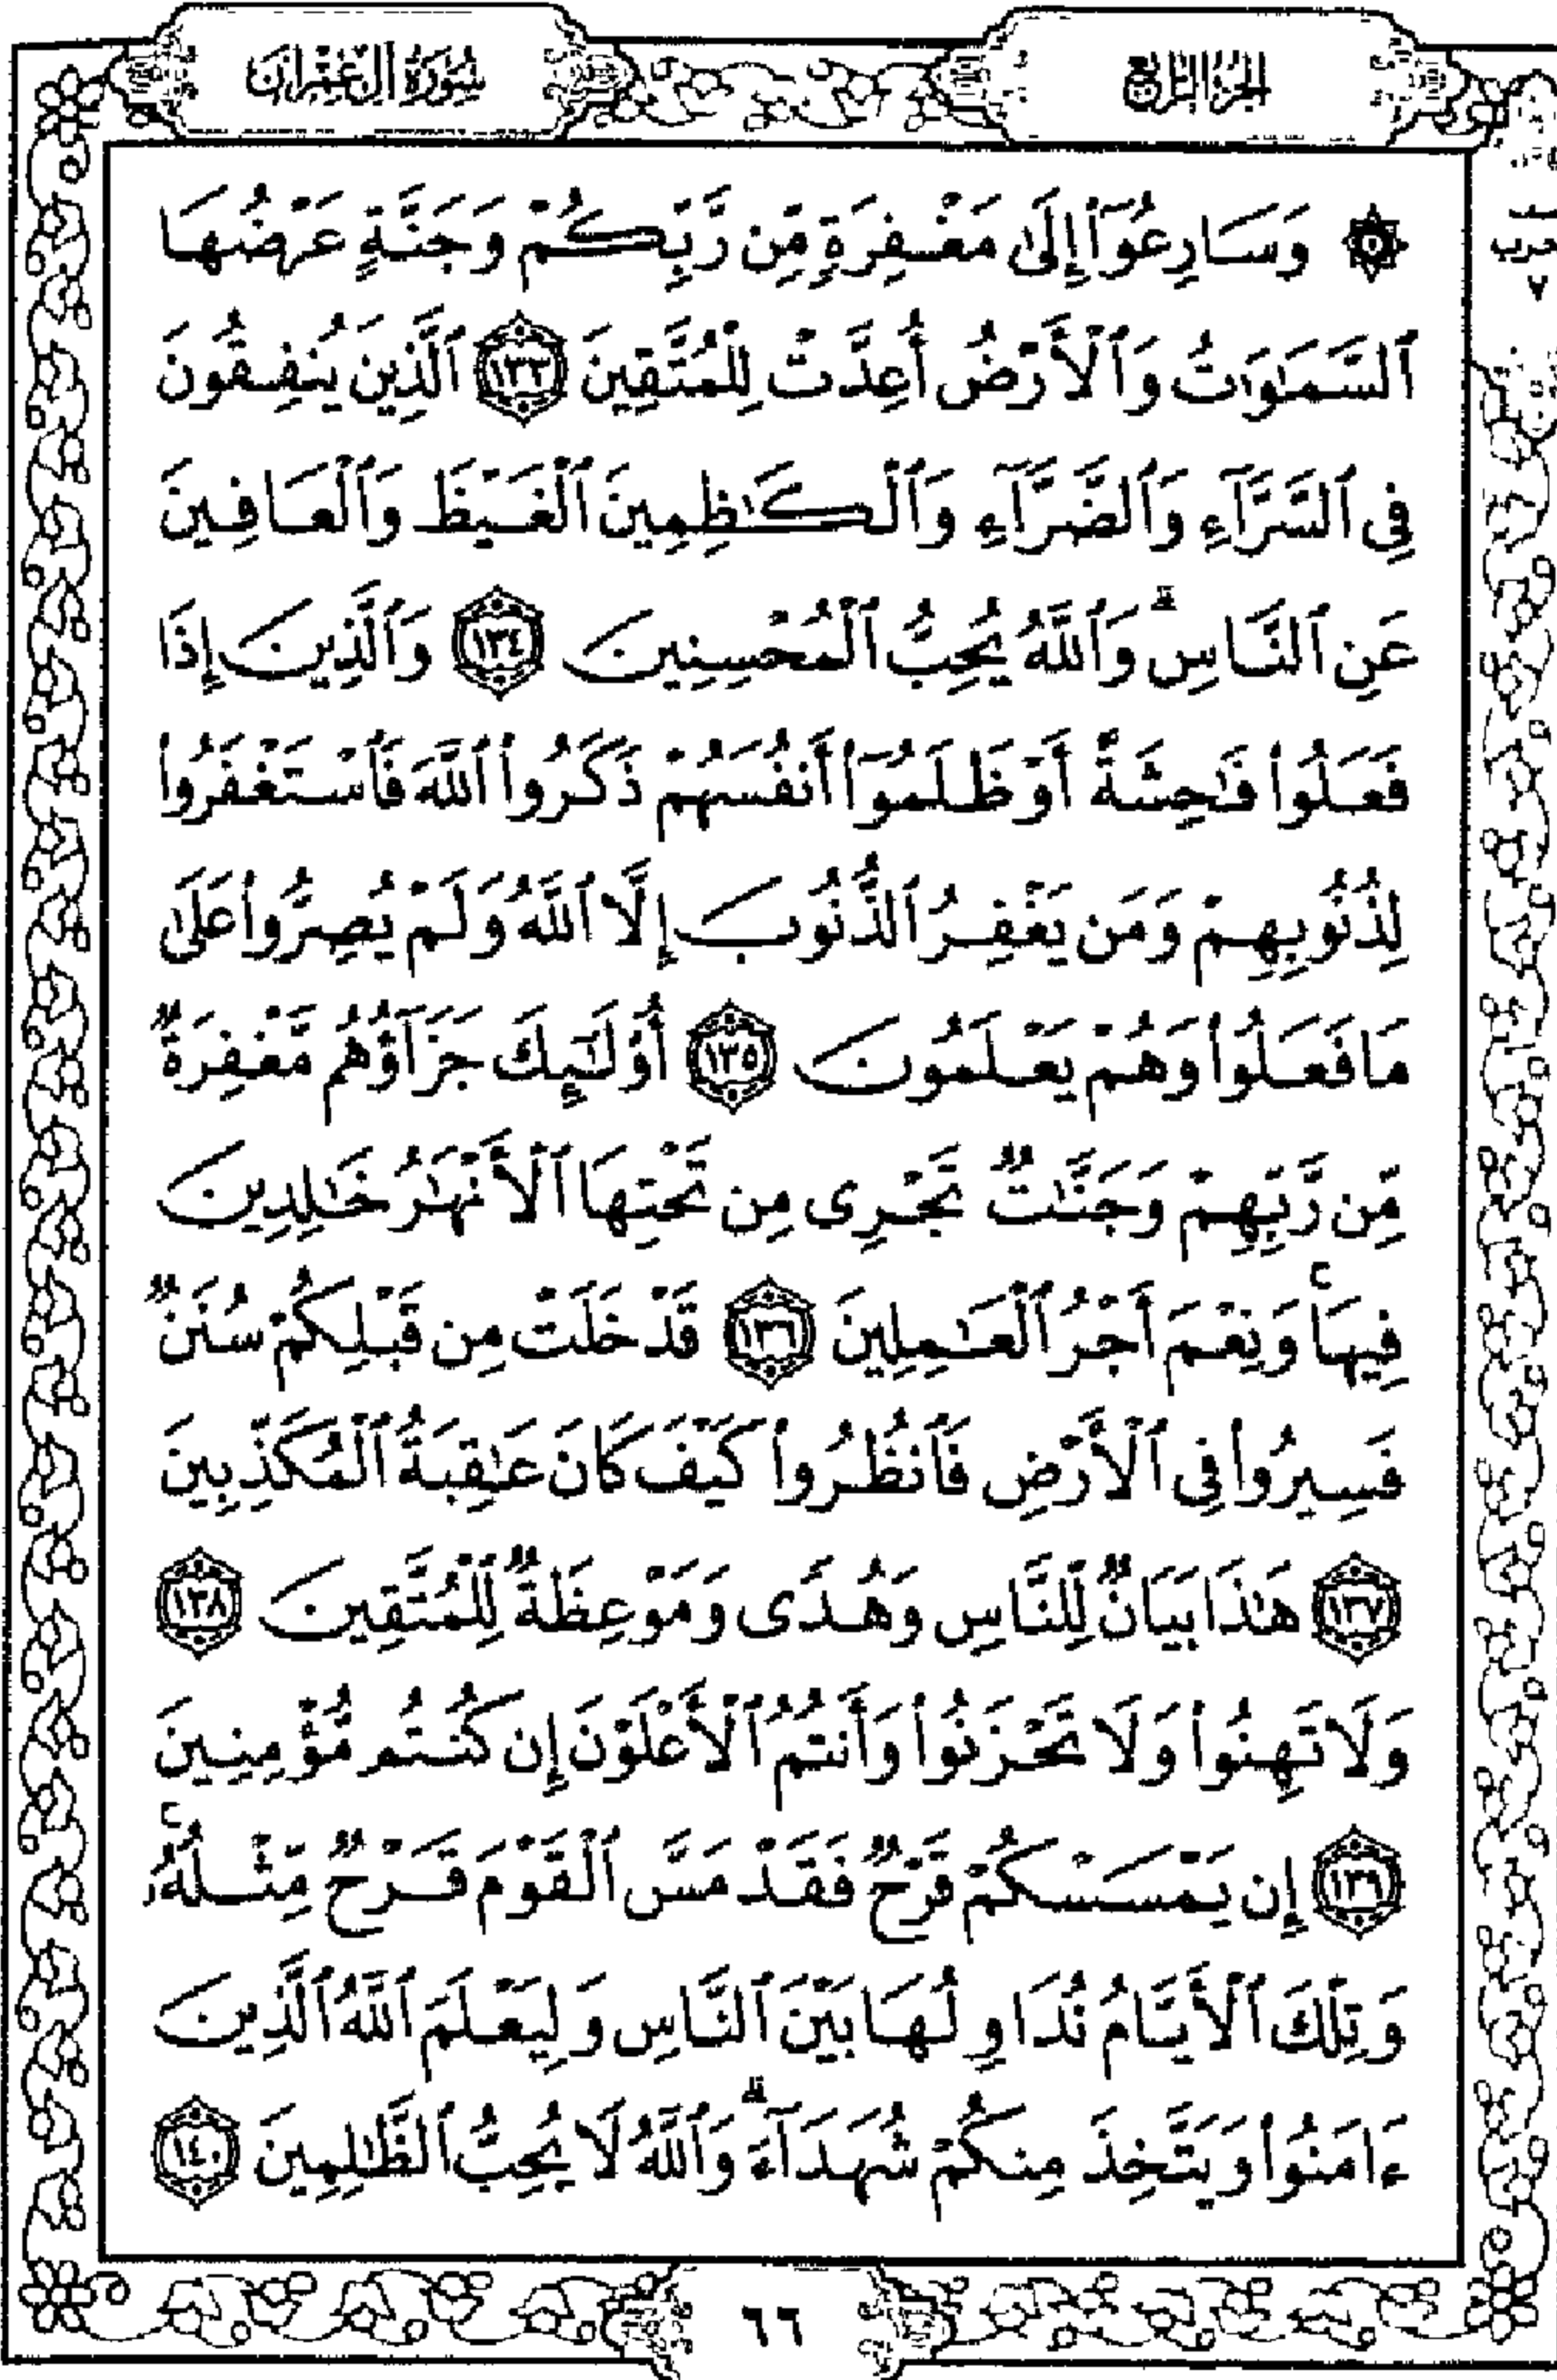 الجزء الرابع
سورة آل عمران
حزب
٧
۞ وَسَارِعُوٓا۟ إِلَىٰ مَغْفِرَةٍ مِّن رَّبِّكُمْ وَجَنَّةٍ عَرْضُهَا
ٱلسَّمَـٰوَٰتُ وَٱلْأَرْضُ أُعِدَّتْ لِلْمُتَّقِينَ ١٣٣ ٱلَّذِينَ يُنفِقُونَ
فِى ٱلسَّرَّآءِ وَٱلضَّرَّآءِ وَٱلْكَـٰظِمِينَ ٱلْغَيْظَ وَٱلْعَافِينَ
عَنِ ٱلنَّاسِ ۗ وَٱللَّهُ يُحِبُّ ٱلْمُحْسِنِينَ ١٣٤ وَٱلَّذِينَ إِذَا
فَعَلُوا۟ فَـٰحِشَةً أَوْ ظَلَمُوٓا۟ أَنفُسَهُمْ ذَكَرُوا۟ ٱللَّهَ فَٱسْتَغْفَرُوا۟
لِذُنُوبِهِمْ وَمَن يَغْفِرُ ٱلذُّنُوبَ إِلَّا ٱللَّهُ وَلَمْ يُصِرُّوا۟ عَلَىٰ
مَا فَعَلُوا۟ وَهُمْ يَعْلَمُونَ ١٣٥ أُو۟لَـٰٓئِكَ جَزَآؤُهُم مَّغْفِرَةٌ
مِّن رَّبِّهِمْ وَجَنَّـٰتٌ تَجْرِى مِن تَحْتِهَا ٱلْأَنْهَـٰرُ خَـٰلِدِينَ
فِيهَا ۚ وَنِعْمَ أَجْرُ ٱلْعَـٰمِلِينَ ١٣٦ قَدْ خَلَتْ مِن قَبْلِكُمْ سُنَنٌ
فَسِيرُوا۟ فِى ٱلْأَرْضِ فَٱنظُرُوا۟ كَيْفَ كَانَ عَـٰقِبَةُ ٱلْمُكَذِّبِينَ
١٣٧ هَـٰذَا بَيَانٌ لِّلنَّاسِ وَهُدًى وَمَوْعِظَةٌ لِّلْمُتَّقِينَ ١٣٨
وَلَا تَهِنُوا۟ وَلَا تَحْزَنُوا۟ وَأَنتُمُ ٱلْأَعْلَوْنَ إِن كُنتُم مُّؤْمِنِينَ
١٣٩ إِن يَمْسَسْكُمْ قَرْحٌ فَقَدْ مَسَّ ٱلْقَوْمَ قَرْحٌ مِّثْلُهُۥ ۚ
وَتِلْكَ ٱلْأَيَّامُ نُدَاوِلُهَا بَيْنَ ٱلنَّاسِ وَلِيَعْلَمَ ٱللَّهُ ٱلَّذِينَ
ءَامَنُوا۟ وَيَتَّخِذَ مِنكُمْ شُهَدَآءَ ۗ وَٱللَّهُ لَا يُحِبُّ ٱلظَّـٰلِمِينَ ١٤٠
٦٦